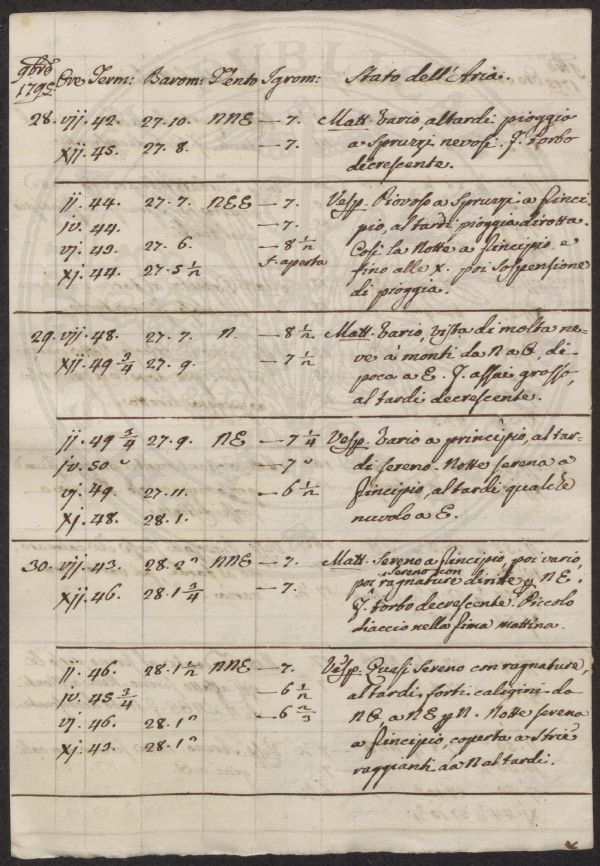 9bre
1795 Ore Term: Barom: Vento Igrom: Stato dell'Aria.
28. vij. 42. 27.10. NNE — 7. Matt. Vario, al tardi pioggia
xij. 45. 27. 8. — 7. a spruzzi nevosi. F. torbo
decrescente.
ij. 44. 27. 7. NEE — 7. Vesp. Piovoso a spruzzi a princi-
iv. 44. — 7. pio, al tardi pioggia dirotta.
vj. 43. 27. 6. — 8 1/2 Così la Notte a principio e
xj. 44. 27. 5 1/2 f. aperta fino alle x. poi sospensione
di pioggia.
29. vij. 48. 27. 7. N. — 8 1/2 Matt. Vario, vista di molta ne-
xij. 49 3/4 27. 9. — 7 1/2 ve a' monti da N a O, di
poca a E. F. assai grosso,
al tardi decrescente.
ij. 49 3/4 27. 9. NE — 7 1/4 Vesp. Vario a principio, al tar-
iv. 50 — 7 di sereno. Notte serena a
vj. 49. 27. 11. — 6 1/2 principio, al tardi qualche
xj. 48. 28. 1. nuvolo a E.
30. vij. 43. 28. 2 NNE — 7. Matt. Sereno a principio, poi vario,
sereno con
xij. 46. 28. 1 3/4 — 7. poi ragnature dirite NE.
F. torbo decrescente. Piccolo
diaccio nella prima mattina.
ij. 46. 28. 1 1/2 NNE — 7. Vesp. Quasi sereno con ragnature,
iv. 45 3/4 — 6 1/2 al tardi forti caligini da
vj. 46. 28. 1 — 6 2/3 NO, a NE p N. Notte serena
xj. 43. 28. 1 a principio, coperta a strie
raggianti da N al tardi.